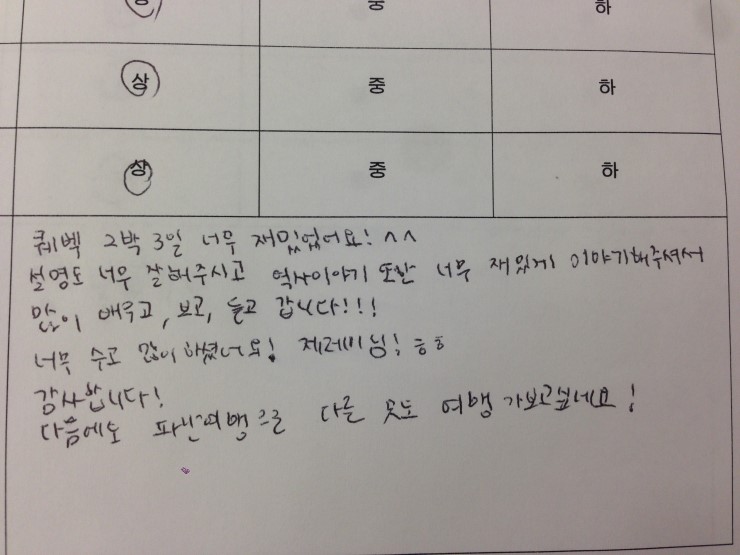 상 중 하
상 중 하
상 중 하
퀘벡 2박 3일 너무 재밌었어요! ^^
설명도 너무 잘해주시고 역사이야기 또한 너무 재있게 이야기해주셔서
많이 배우고, 보고, 듣고 갑니다!!!
너무 수고 많이하셨어요! 제레미님! ㅎㅎ
감사합니다!
다음에도 파란여행으로 다른 곳도 여행 가보고싶네요!